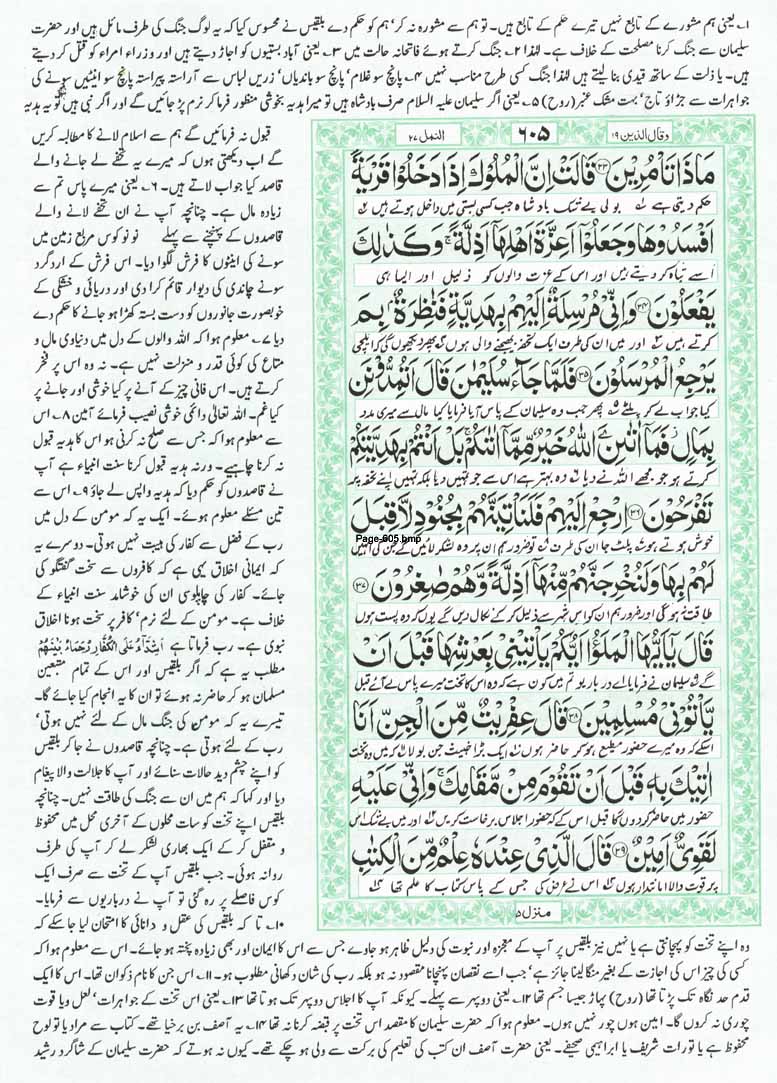 ۱۔ یعنی ہم مشورے کے تابع نہیں تیرے حکم کے تابع ہیں۔ تو ہم سے مشورہ نہ کر' ہم کو حکم دے بلقیس نے محسوس کیا کہ یہ لوگ جنگ کی طرف مائل ہیں اور حضرت
سلیمان سے جنگ کرنا مصلحت کے خلاف ہے۔ لہٰذا ۲۔ جنگ کرتے ہوئے فاتحانہ حالت میں ۳۔ یعنی آباد بستیوں کو اجاڑ دیتے ہیں اور وزراء امراء کو قتل کر دیتے
ہیں۔ یا ذلت کے ساتھ قیدی بنا لیتے ہیں لہٰذا جنگ کسی طرح مناسب نہیں ۴۔ پانچ سو غلام' پانچ سو باندیاں' زریں لباس سے آراستہ پیراستہ پانچ سو اینٹیں سونے کی
جواہرات سے جڑاؤ تاج' بہت مشک عنبر (روح) ۵۔ یعنی اگر سلیمان علیہ السلام صرف بادشاہ ہیں تو میرا ہدیہ بخوشی منظور فرما کر نرم پڑ جائیں گے اور اگر نبی ہیں تو یہ ہدیہ
وقال الذین ۱۹
۶۰۵
النمل ۲۷
مَاذَا تَاْمُرِیْنَ ۳۳ قَالَتْ اِنَّ الْمُلُوْكَ اِذَا دَخَلُوْا قَرْیَةً
حکم دیتی ہے بولی بے شک بادشاہ جب کسی بستی میں داخل ہوتے ہیں
اَفْسَدُوْهَا وَجَعَلُوْۤا اَعِزَّةَ اَهْلِهَاۤ اَذِلَّةً ۚ وَكَذٰلِكَ
اسے تباہ کر دیتے ہیں اور اس کے عزت والوں کو ذلیل اور ایسا ہی
یَفْعَلُوْنَ ۳۴ وَاِنِّیْ مُرْسِلَةٌ اِلَیْهِمْ بِهَدِیَّةٍ فَنٰظِرَةٌۢ بِمَ
کرتے ہیں اور میں ان کی طرف ایک تحفہ بھیجنے والی ہوں پھر دیکھوں گی کہ ایلچی
یَرْجِعُ الْمُرْسَلُوْنَ ۳۵ فَلَمَّا جَآءَ سُلَیْمٰنَ قَالَ اَتُمِدُّوْنَنِ
کیا جواب لے کر پلٹے پھر جب وہ سلیمان کے پاس آیا فرمایا کیا مال سے میری مدد
بِمَالٍ ؗ فَمَاۤ اٰتٰىنِۦَ اللّٰهُ خَیْرٌ مِّمَّاۤ اٰتٰىكُمْ ۚ بَلْ اَنْتُمْ بِهَدِیَّتِكُمْ
کرتے ہو جو مجھے اللہ نے دیا وہ بہتر ہے اس سے جو تمہیں دیا بلکہ تمہیں اپنے تحفہ پر
تَفْرَحُوْنَ ۳۶ اِرْجِعْ اِلَیْهِمْ فَلَنَاْتِیَنَّهُمْ بِجُنُوْدٍ لَّا قِبَلَ
خوش ہوتے ہو پلٹ جا ان کی طرف تو ضرور ہم ان پر وہ لشکر لائیں گے جن کی انہیں
Page-605.bmp
لَهُمْ بِهَا وَلَنُخْرِجَنَّهُمْ مِّنْهَاۤ اَذِلَّةً وَّهُمْ صٰغِرُوْنَ ۳۷
طاقت نہ ہوگی اور ضرور ہم ان کو اس شہر سے ذلیل کر کے نکال دیں گے یوں کہ وہ پست ہوں
قَالَ یٰۤاَیُّهَا الْمَلَؤُا اَیُّكُمْ یَاْتِیْنِیْ بِعَرْشِهَا قَبْلَ اَنْ
گے سلیمان نے فرمایا اے درباریو تم میں کون ہے کہ وہ اس کا تخت میرے پاس لے آئے قبل
یَّاْتُوْنِیْ مُسْلِمِیْنَ ۳۸ قَالَ عِفْرِیْتٌ مِّنَ الْجِنِّ اَنَا
اسکے کہ وہ میرے حضور مطیع ہو کر حاضر ہوں ایک بڑا خبیث جن بولا کہ میں وہ تخت
اٰتِیْكَ بِهٖ قَبْلَ اَنْ تَقُوْمَ مِنْ مَّقَامِكَ ۚ وَاِنِّیْ عَلَیْهِ
حضور میں حاضر کر دوں گا قبل اس کے کہ حضور اجلاس برخاست کریں اور میں بے شک اس
لَقَوِیٌّ اَمِیْنٌ ۳۹ قَالَ الَّذِیْ عِنْدَهٗ عِلْمٌ مِّنَ الْكِتٰبِ
پر قوت والا امانتدار ہوں اس نے عرض کی جس کے پاس کتاب کا علم تھا
منزل ۵
قبول نہ فرمائیں گے ہم سے اسلام لانے کا مطالبہ کریں
گے اب دیکھتی ہوں کہ میرے یہ تحفے لے جانے والے
قاصد کیا جواب لاتے ہیں۔ ۶۔ یعنی میرے پاس تم سے
زیادہ مال ہے۔ چنانچہ آپ نے ان تحفے لانے والے
قاصدوں کے پہنچنے سے پہلے نو نو کوس مربع زمین میں
سونے کی اینٹوں کا فرش لگوا دیا۔ اس فرش کے اردگرد
سونے چاندی کی دیوار قائم کرا دی اور دریائی و خشکی کے
خوبصورت جانوروں کو دست بستہ کھڑا ہو جانے کا حکم دے
دیا ۷۔ معلوم ہوا کہ اللہ والوں کے دل میں دنیاوی مال و
متاع کی کوئی قدر و منزلت نہیں ہے۔ نہ وہ اس پر فخر
کرتے ہیں۔ اس فانی چیز کے آنے پر کیا خوشی اور جانے پر
کیا غم۔ اللہ تعالیٰ دائمی خوشی نصیب فرمائے آمین ۸۔ اس
سے معلوم ہوا کہ جس سے صلح نہ کرنی ہو اس کا ہدیہ قبول
نہ کرنا چاہیے۔ ورنہ ہدیہ قبول کرنا سنت انبیاء ہے آپ
نے قاصدوں کو حکم دیا کہ ہدیہ واپس لے جاؤ ۹۔ اس سے
تین مسئلے معلوم ہوئے۔ ایک یہ کہ مومن کے دل میں
رب کے فضل سے کفار کی ہیبت نہیں ہوتی۔ دوسرے یہ
کہ ایمانی اخلاق یہی ہے کہ کافروں سے سخت گفتگو کی
جائے۔ کفار کی چاپلوسی ان کی خوشامد سنت انبیاء کے
خلاف ہے۔ مومن کے لئے نرم' کافر پر سخت ہونا اخلاق
نبوی ہے۔ رب فرماتا ہے اَشِدَّآءُ عَلَی الْكُفَّارِ رُحَمَآءُ بَیْنَهُمْ
مطلب یہ ہے کہ اگر بلقیس اور اس کے تمام متبعین
مسلمان ہو کر حاضر نہ ہوئے تو ان کا یہ انجام کیا جائے گا۔
تیسرے یہ کہ مومن کی جنگ مال کے لئے نہیں ہوتی'
رب کے لئے ہوتی ہے۔ چنانچہ قاصدوں نے جا کر بلقیس
کو اپنے چشم دید حالات سنائے اور آپ کا جلالت والا پیغام
دیا اور کہا کہ ہم میں ان سے جنگ کی طاقت نہیں۔ چنانچہ
بلقیس اپنے تخت کو سات محلوں کے آخری محل میں محفوظ
و مقفل کر کے ایک بھاری لشکر لے کر آپ کی طرف
روانہ ہوئی۔ جب بلقیس آپ کے تخت سے صرف ایک
کوس فاصلے پر رہ گئی تو آپ نے درباریوں سے فرمایا۔
۱۰۔ تا کہ بلقیس کی عقل و دانائی کا امتحان لیا جا سکے کہ
وہ اپنے تخت کو پہچانتی ہے یا نہیں نیز بلقیس پر آپ کے معجزہ اور نبوت کی دلیل ظاہر ہو جاوے جس سے اس کا ایمان اور بھی زیادہ پختہ ہو جائے۔ اس سے معلوم ہوا کہ
کسی کی چیز اس کی اجازت کے بغیر منگا لینا جائز ہے' جب اسے نقصان پہنچانا مقصود نہ ہو بلکہ رب کی شان دکھانی مطلوب ہو۔ ۱۱۔ اس جن کا نام ذکوان تھا۔ اس کا ایک
قدم حد نگاہ تک پڑتا تھا (روح) پہاڑ جیسا جسم تھا ۱۲۔ یعنی دوپہر سے پہلے۔ کیونکہ آپ کا اجلاس دوپہر تک ہوتا تھا ۱۳۔ یعنی اس تخت کے جواہرات' لعل و یاقوت
چوری نہ کروں گا۔ امین ہوں چور نہیں ہوں۔ معلوم ہوا کہ حضرت سلیمان کا مقصد اس تخت پر قبضہ کرنا نہ تھا ۱۴۔ یہ آصف بن برخیا تھے۔ کتاب سے مراد یا تو لوح
محفوظ ہے یا تورات شریف یا ابراہیمی صحیفے۔ یعنی حضرت آصف ان کتب کی تعلیم کی برکت سے ولی ہو چکے تھے۔ کیوں نہ ہوتے کہ حضرت سلیمان کے شاگرد رشید